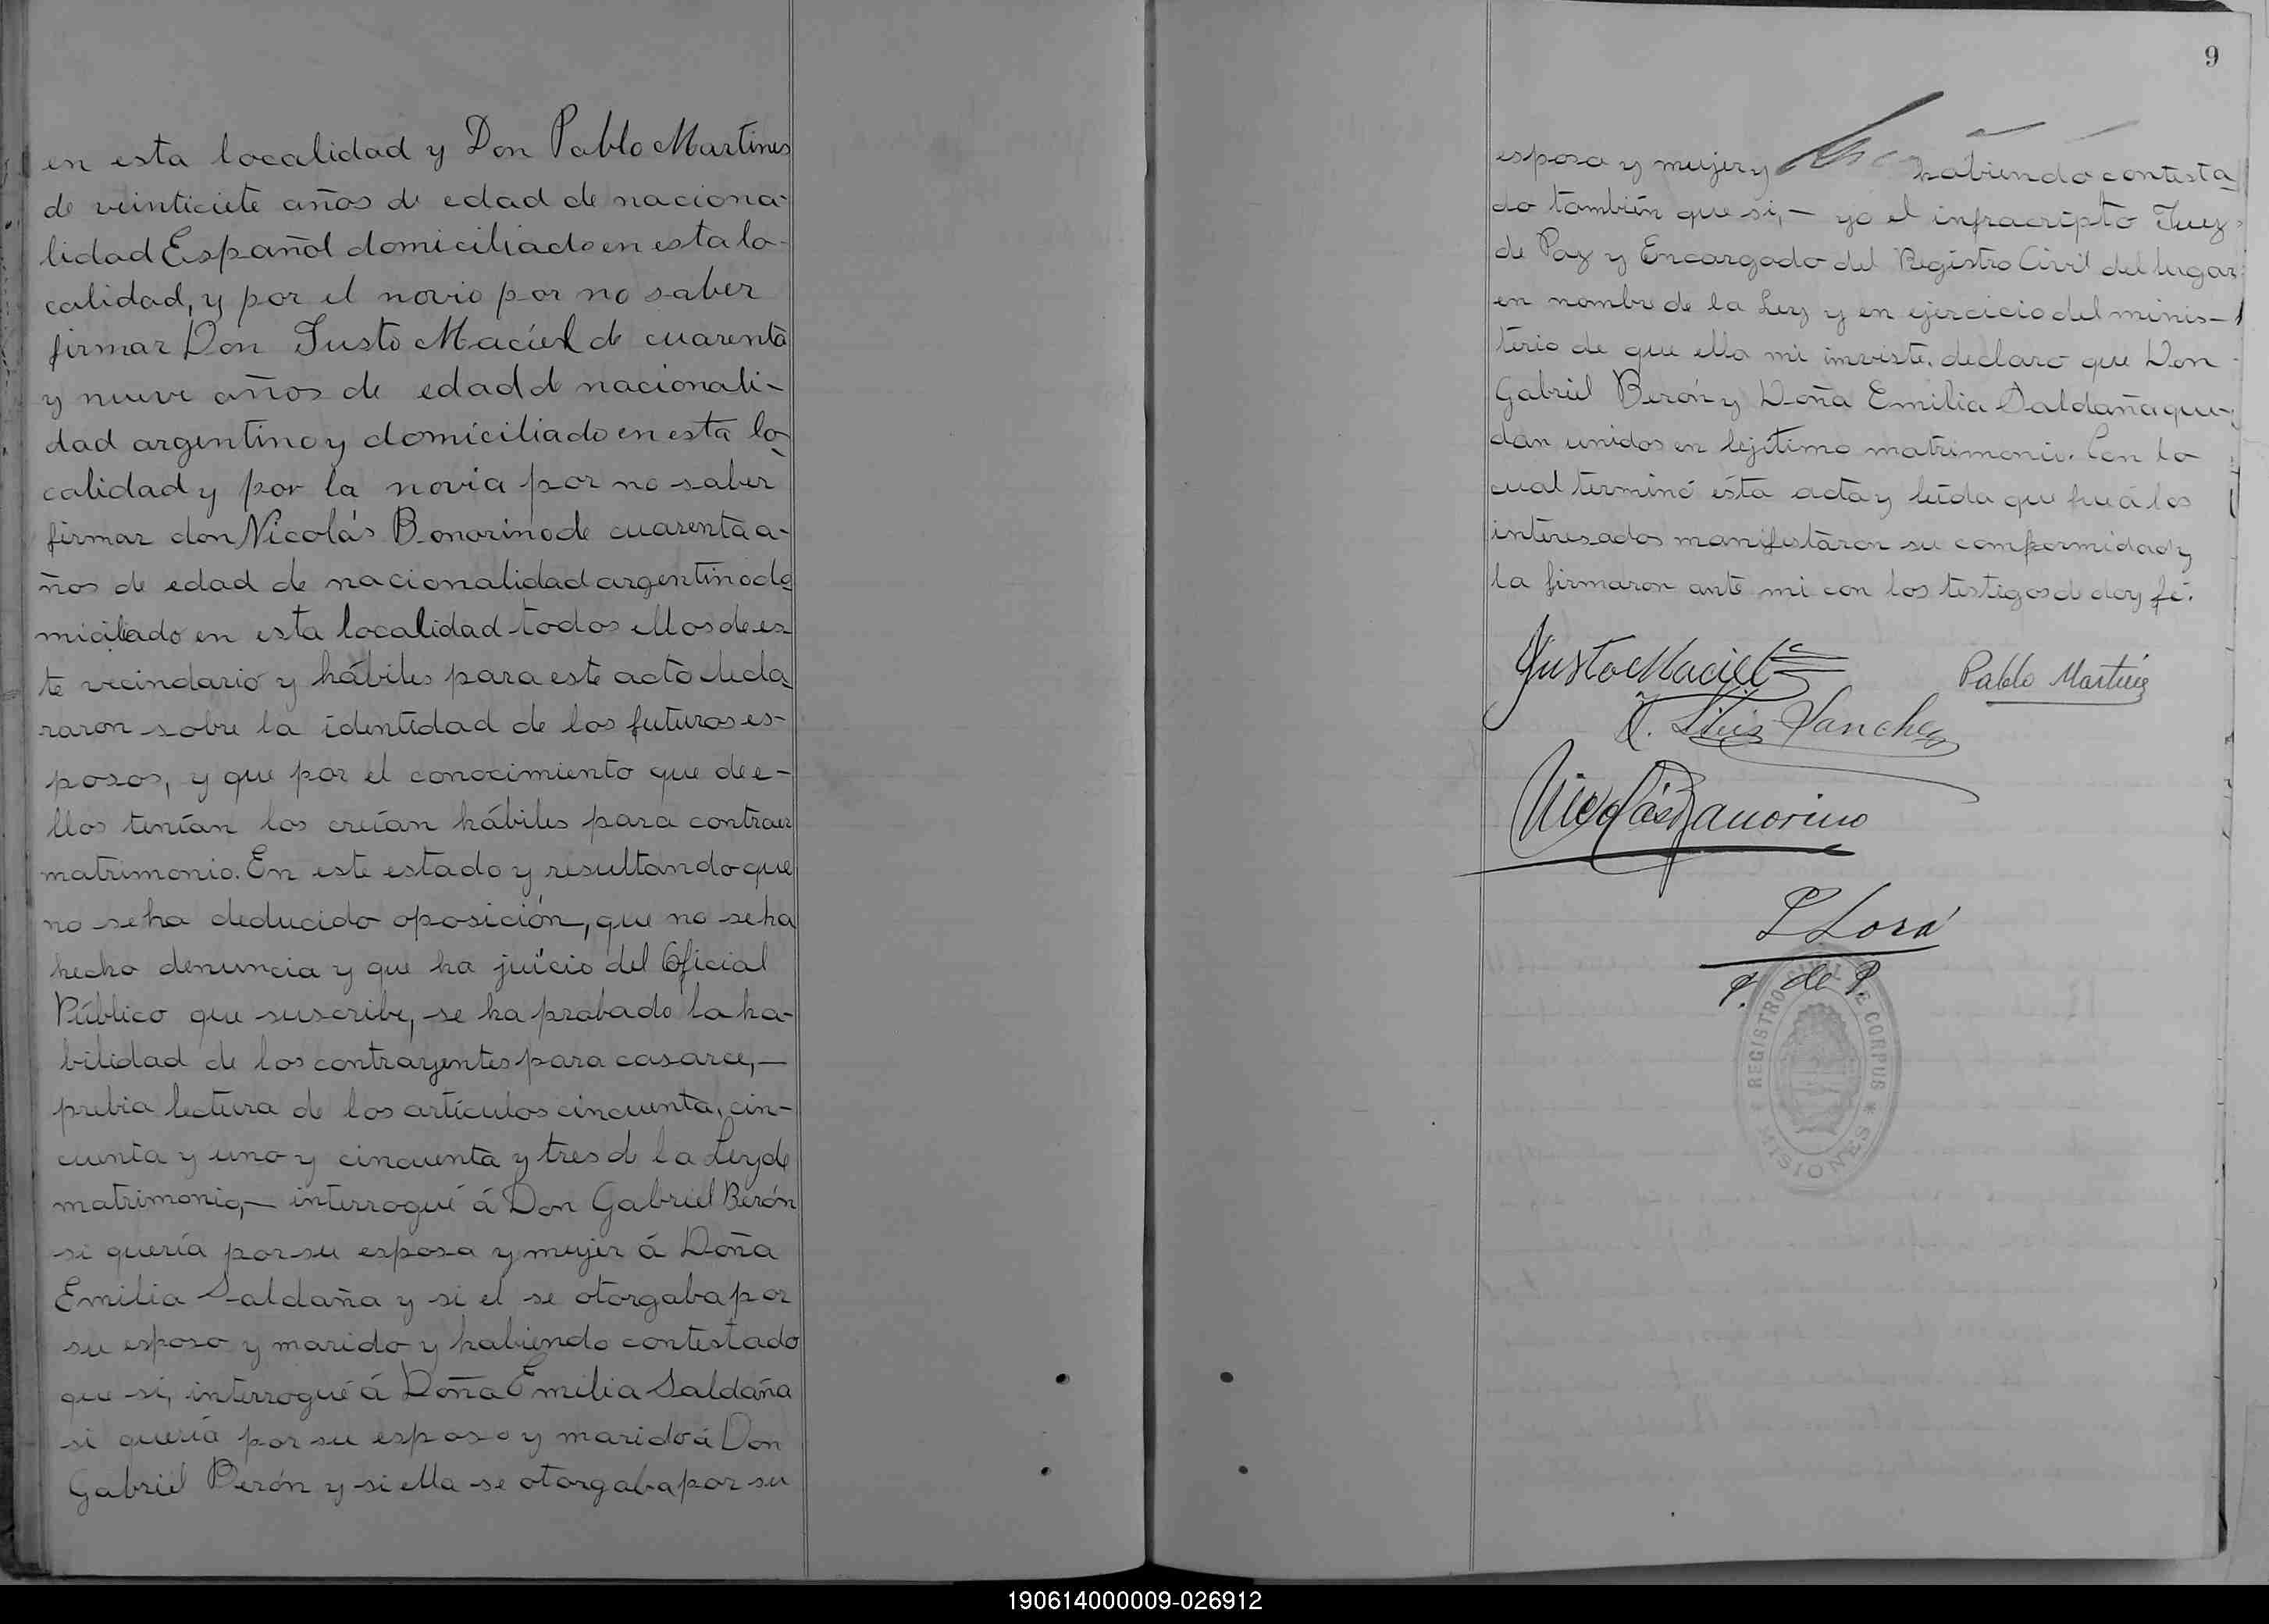 en esta localidad y Don Pablo Martines
de veinticiete años de edad de naciona-
lidad Español domiciliado en esta lo-
calidad, y por el novio por no saber
firmar Don Justo Maciel de cuarenta
y nueve años de edad d nacionali-
dad argentino y domiciliado en esta lo
calidad y por la novia por no saber
firmar don Nicolás Bonorino de cuarenta a-
ños de edad de nacionalidad argentino do
miciliado en esta localidad todos ellos de es
te vecindario y hábiles para este acto decla
raron sobre la identidad de los futuros es-
posos, y que por el conocimiento que de e-
llos tenían los creían hábiles para contraer
matrimonio. En este estado y resultando que
no se ha deducido oposición, que no se ha
hecho denuncia y que ha juicio del Oficial
Público que suscribe, se ha probado la ha-
bilidad de los contrayentes para casarce,—
prebia lectura de los artículos cincuenta, cin-
cuenta y uno y cincuenta y tres d la Ley de
matrimonio,— interrogué á Don Gabriel Berón
si quería por su esposa y mujer á Doña
Emilia Saldaña y si el se otorgaba por
su esposo y marido y habiendo contestado
que si, interrogué á Doña Emilia Saldaña
si quería por su esposo y marido á Don
Gabriel Berón y si ella se otorgaba por su
9
esposa y mujer y habiendo contesta
do también que si,— yo el infracripto Juez
de Paz y Encargado del Registro Civil del lugar
en nombre de la Ley y en ejercicio del minis-
terio de que ella mi inviste, declaro que Don
Gabriel Berón y Doña Emilia Saldaña que-
dan unidos en lejítimo matrimonio. Con lo
cual terminó ésta acta y leída que fue á los
interesados manifestaron su comformidad y
la firmaron ante mi con los testigos d doy fé.
Justo Maciel
Pablo Martinez
Luis Sanchez
Nicolás Bonorino
L Lora
J. de P.
REGISTRO CIVIL DE CORPUS
* MISIONES *
190614000009-026912